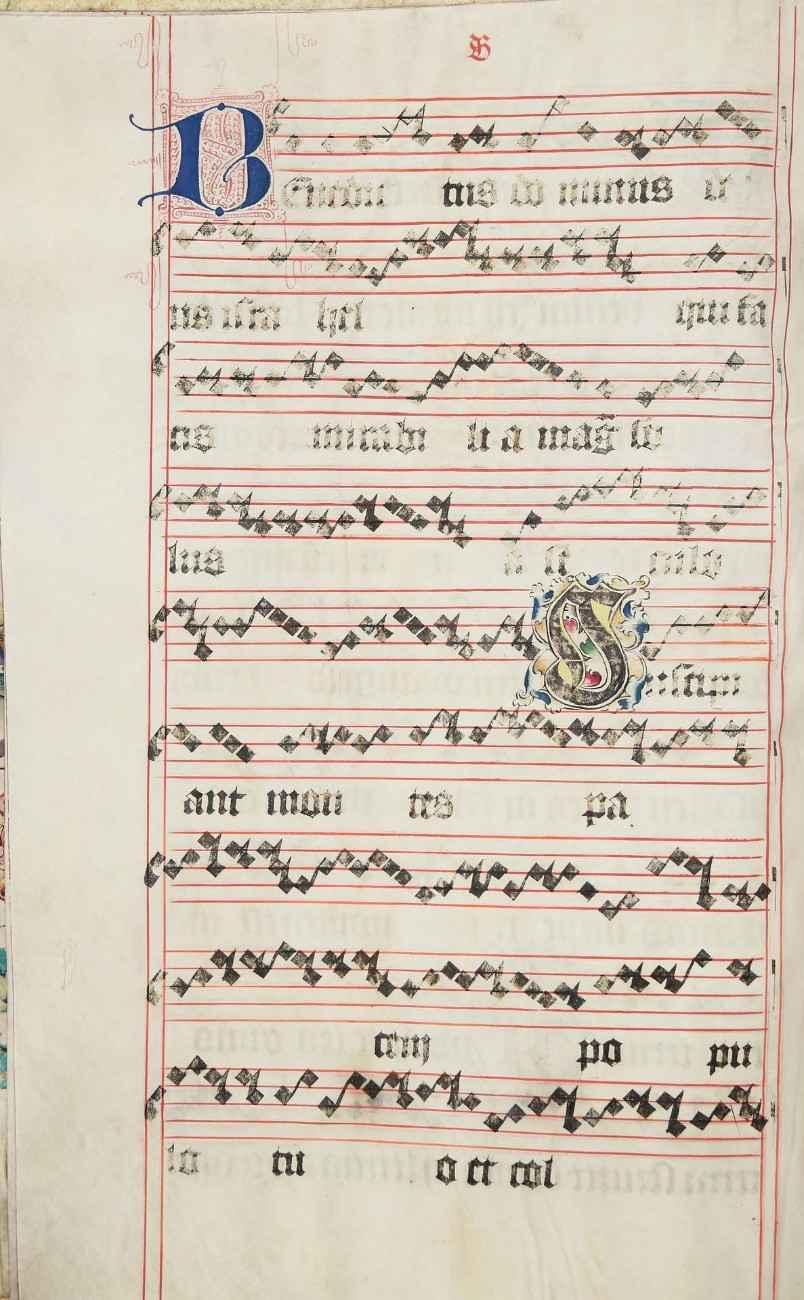 B
Benedic tus do minus de
us isra hel qui fa
cis mirabi li a mag̃ so
lus a se culo
Suscipi
ant mon tes pa
cem po pu
lo tu o et col